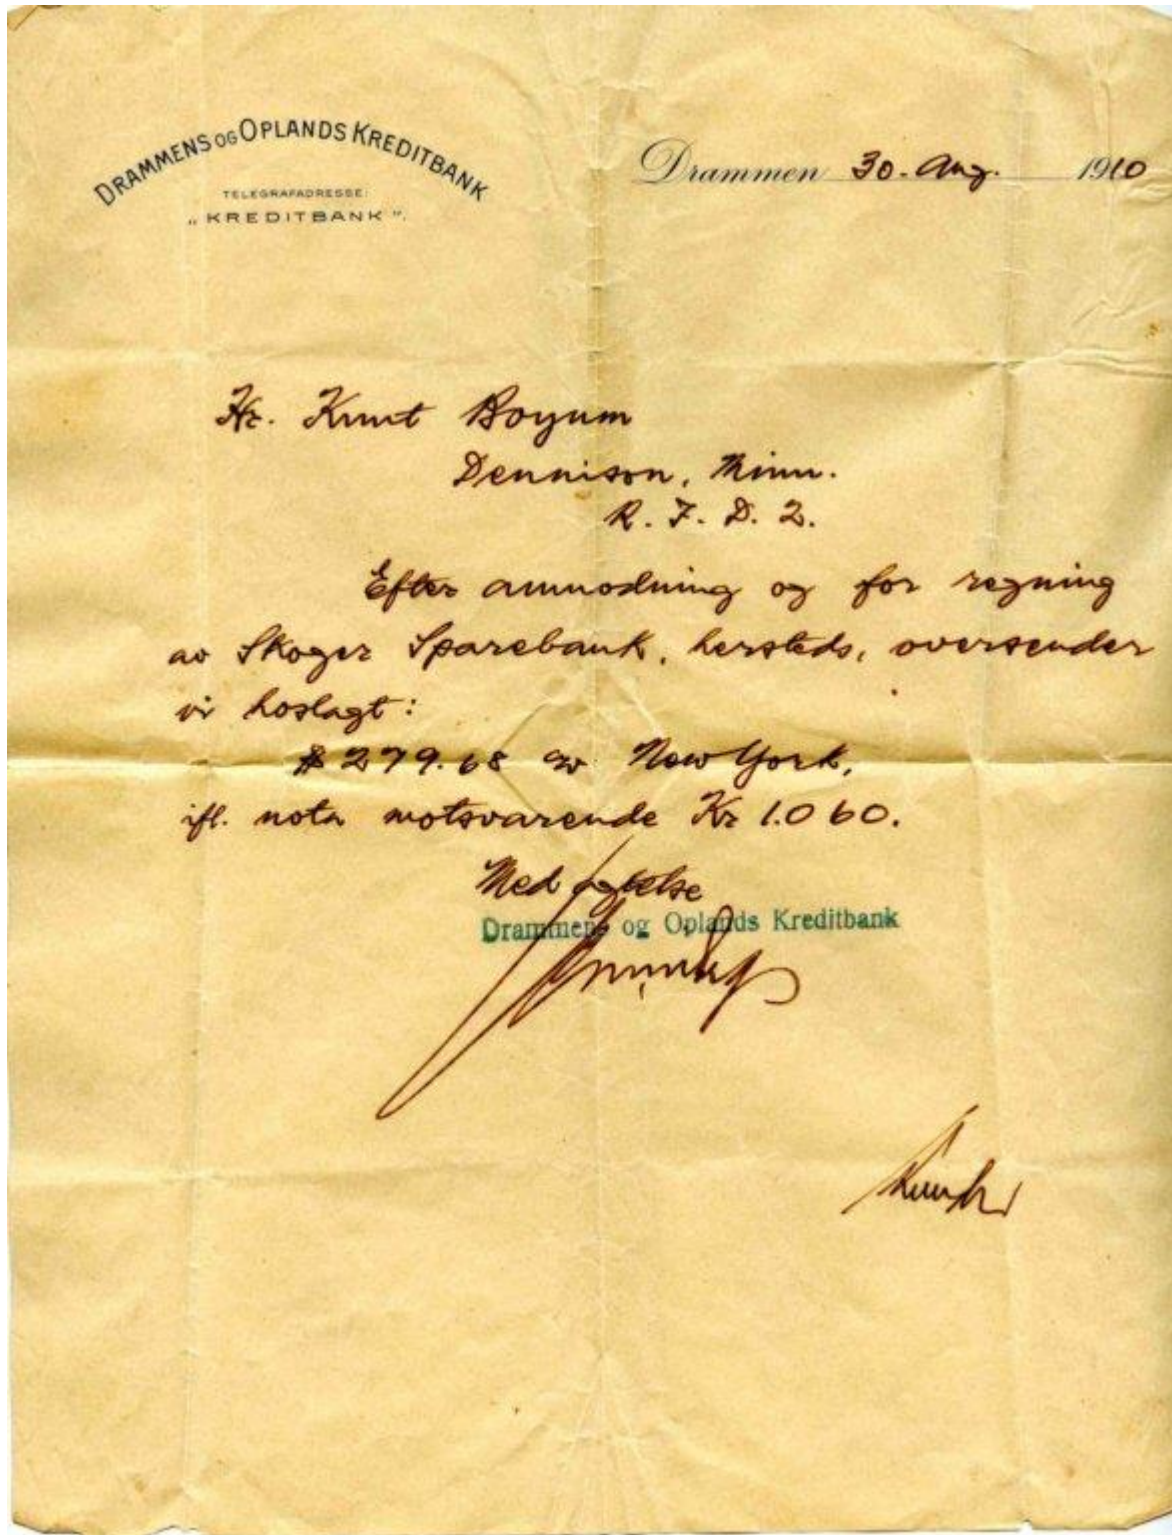 DRAMMENS OG OPLANDS KREDITBANK
TELEGRAFADRESSE:
„KREDITBANK”.
Drammen 30. Aug. 1910
Hr. Knut Boyum
Dennison, Minn.
R. F. D. 2.
Efter anmodning og for regning
av Skoger Sparebank, hersteds, oversender
vi hoslagt:
$ 279.68 New York,
ifl. nota motsvarende Kr 1.060.
Med agtelse
Drammens og Oplands Kreditbank